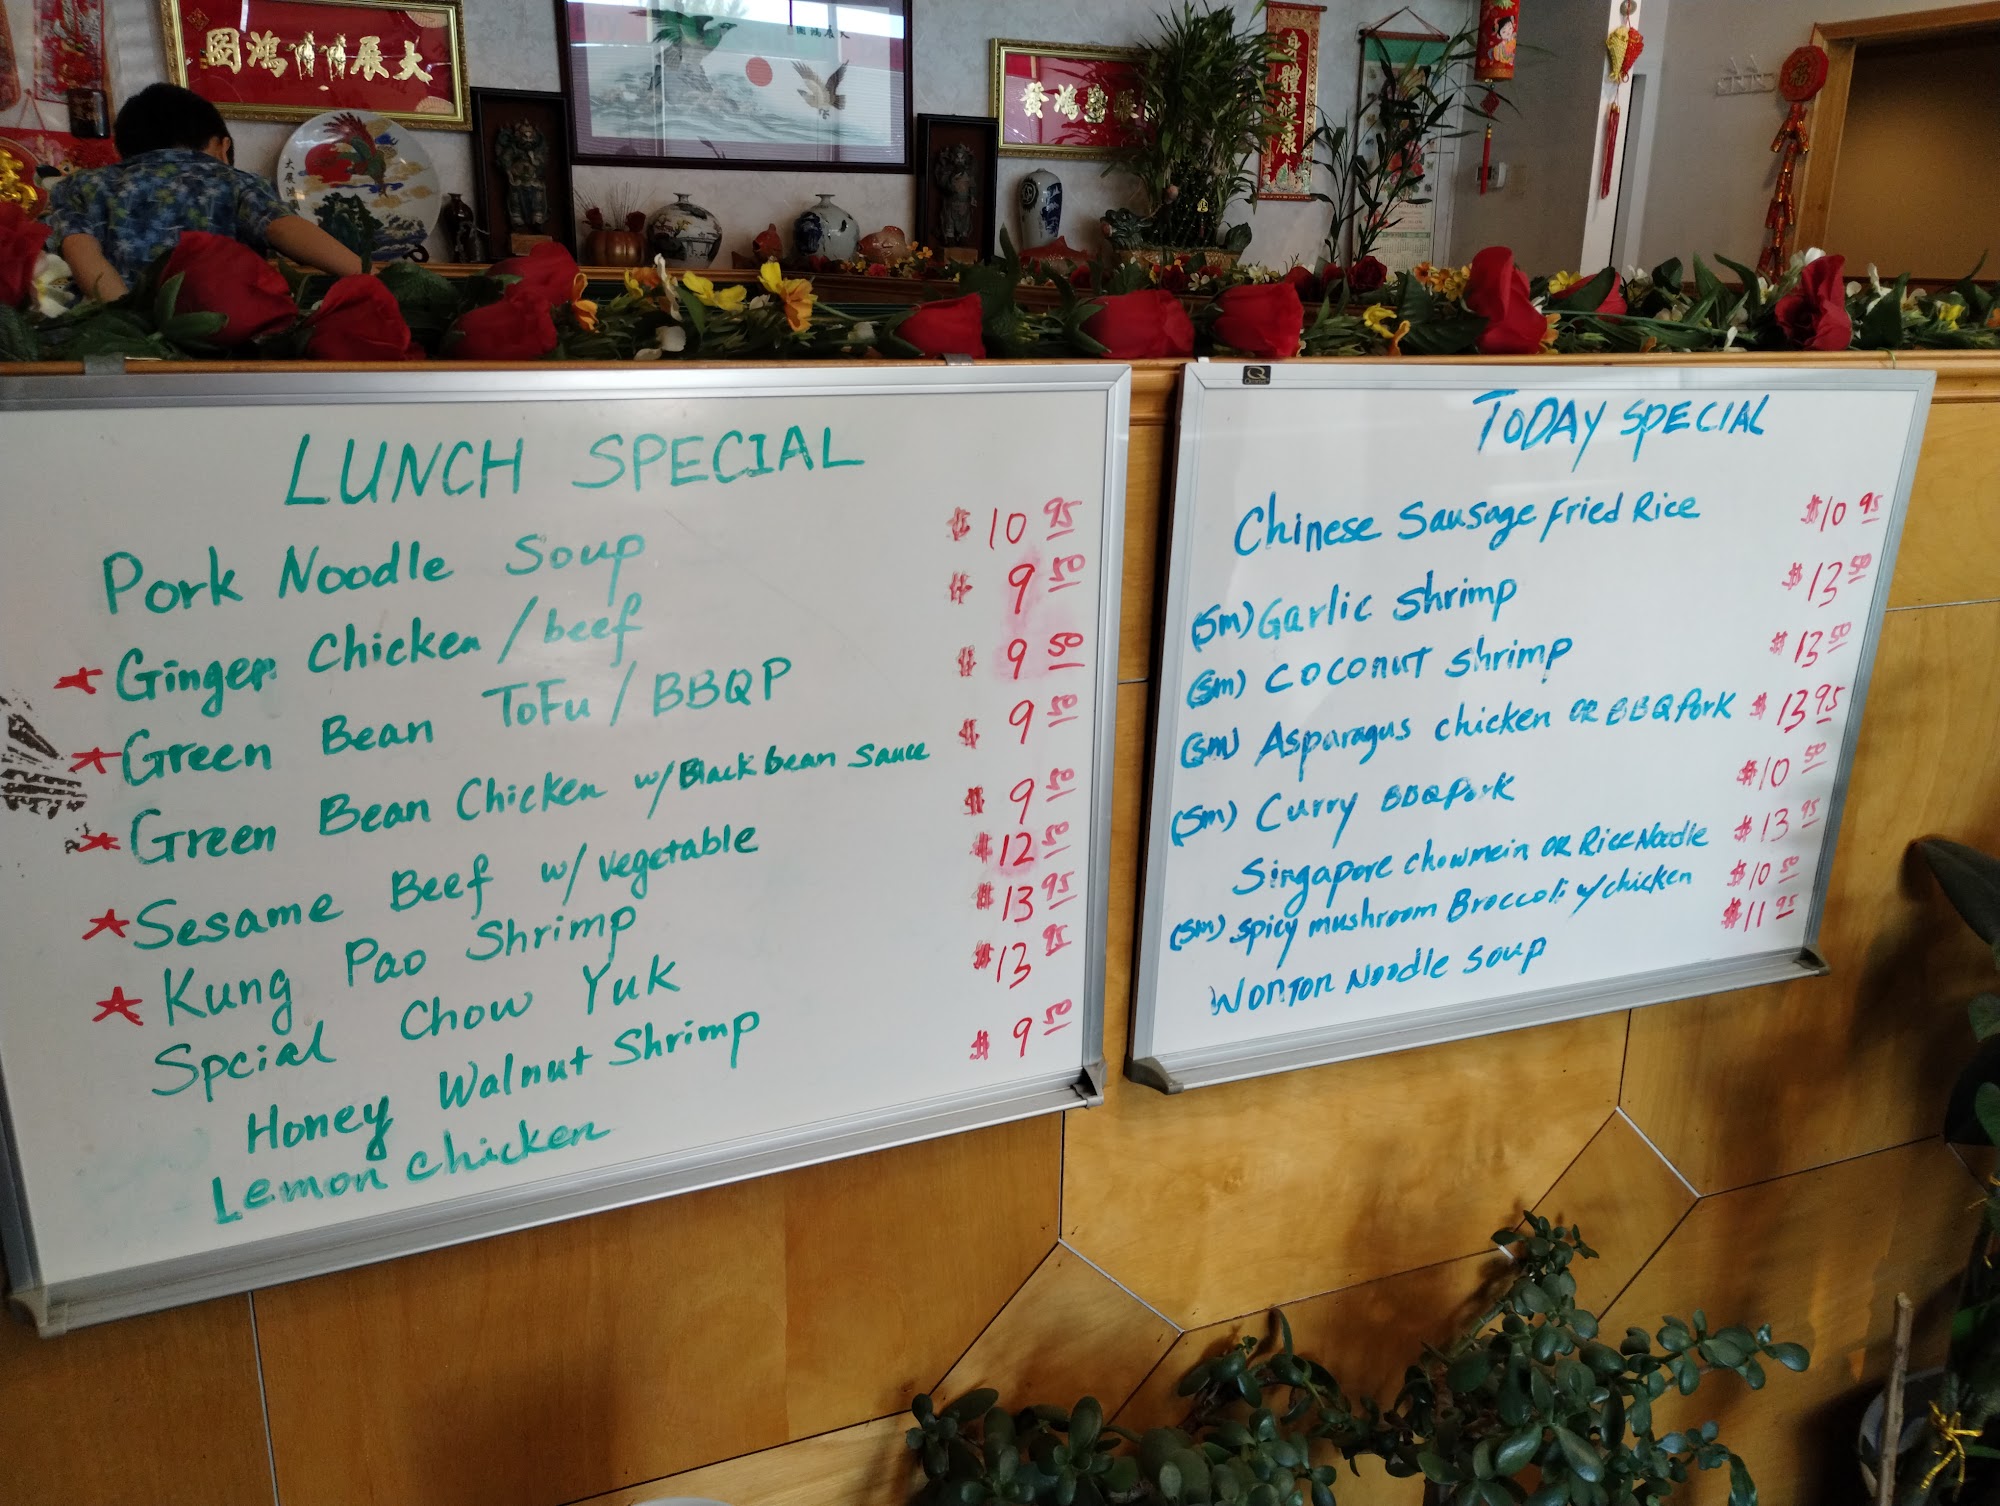 大展鴻圖
大展鴻圖
身體健康
LUNCH SPECIAL
Pork Noodle Soup $10.95
★ Ginger Chicken/beef $9.50
★ Green Bean ToFu/BBQP $9.50
★ Green Bean Chicken w/Black bean sauce $9.50
★ Sesame Beef w/ vegetable $9.50
★ Kung Pao Shrimp $12.50
Spcial Chow Yuk $13.95
Honey Walnut Shrimp $13.95
Lemon chicken $9.50
TODAY SPECIAL
Chinese Sausage Fried Rice $10.95
(Sm) Garlic Shrimp $13.50
(Sm) Coconut Shrimp $13.50
(Sm) Asparagus chicken OR BBQ Pork $13.95
(Sm) Curry BBQ Pork $10.50
Singapore chowmein OR Rice Noodle $13.95
(Sm) Spicy mushroom Broccoli w/chicken $10.50
Wonton Noodle Soup $11.95